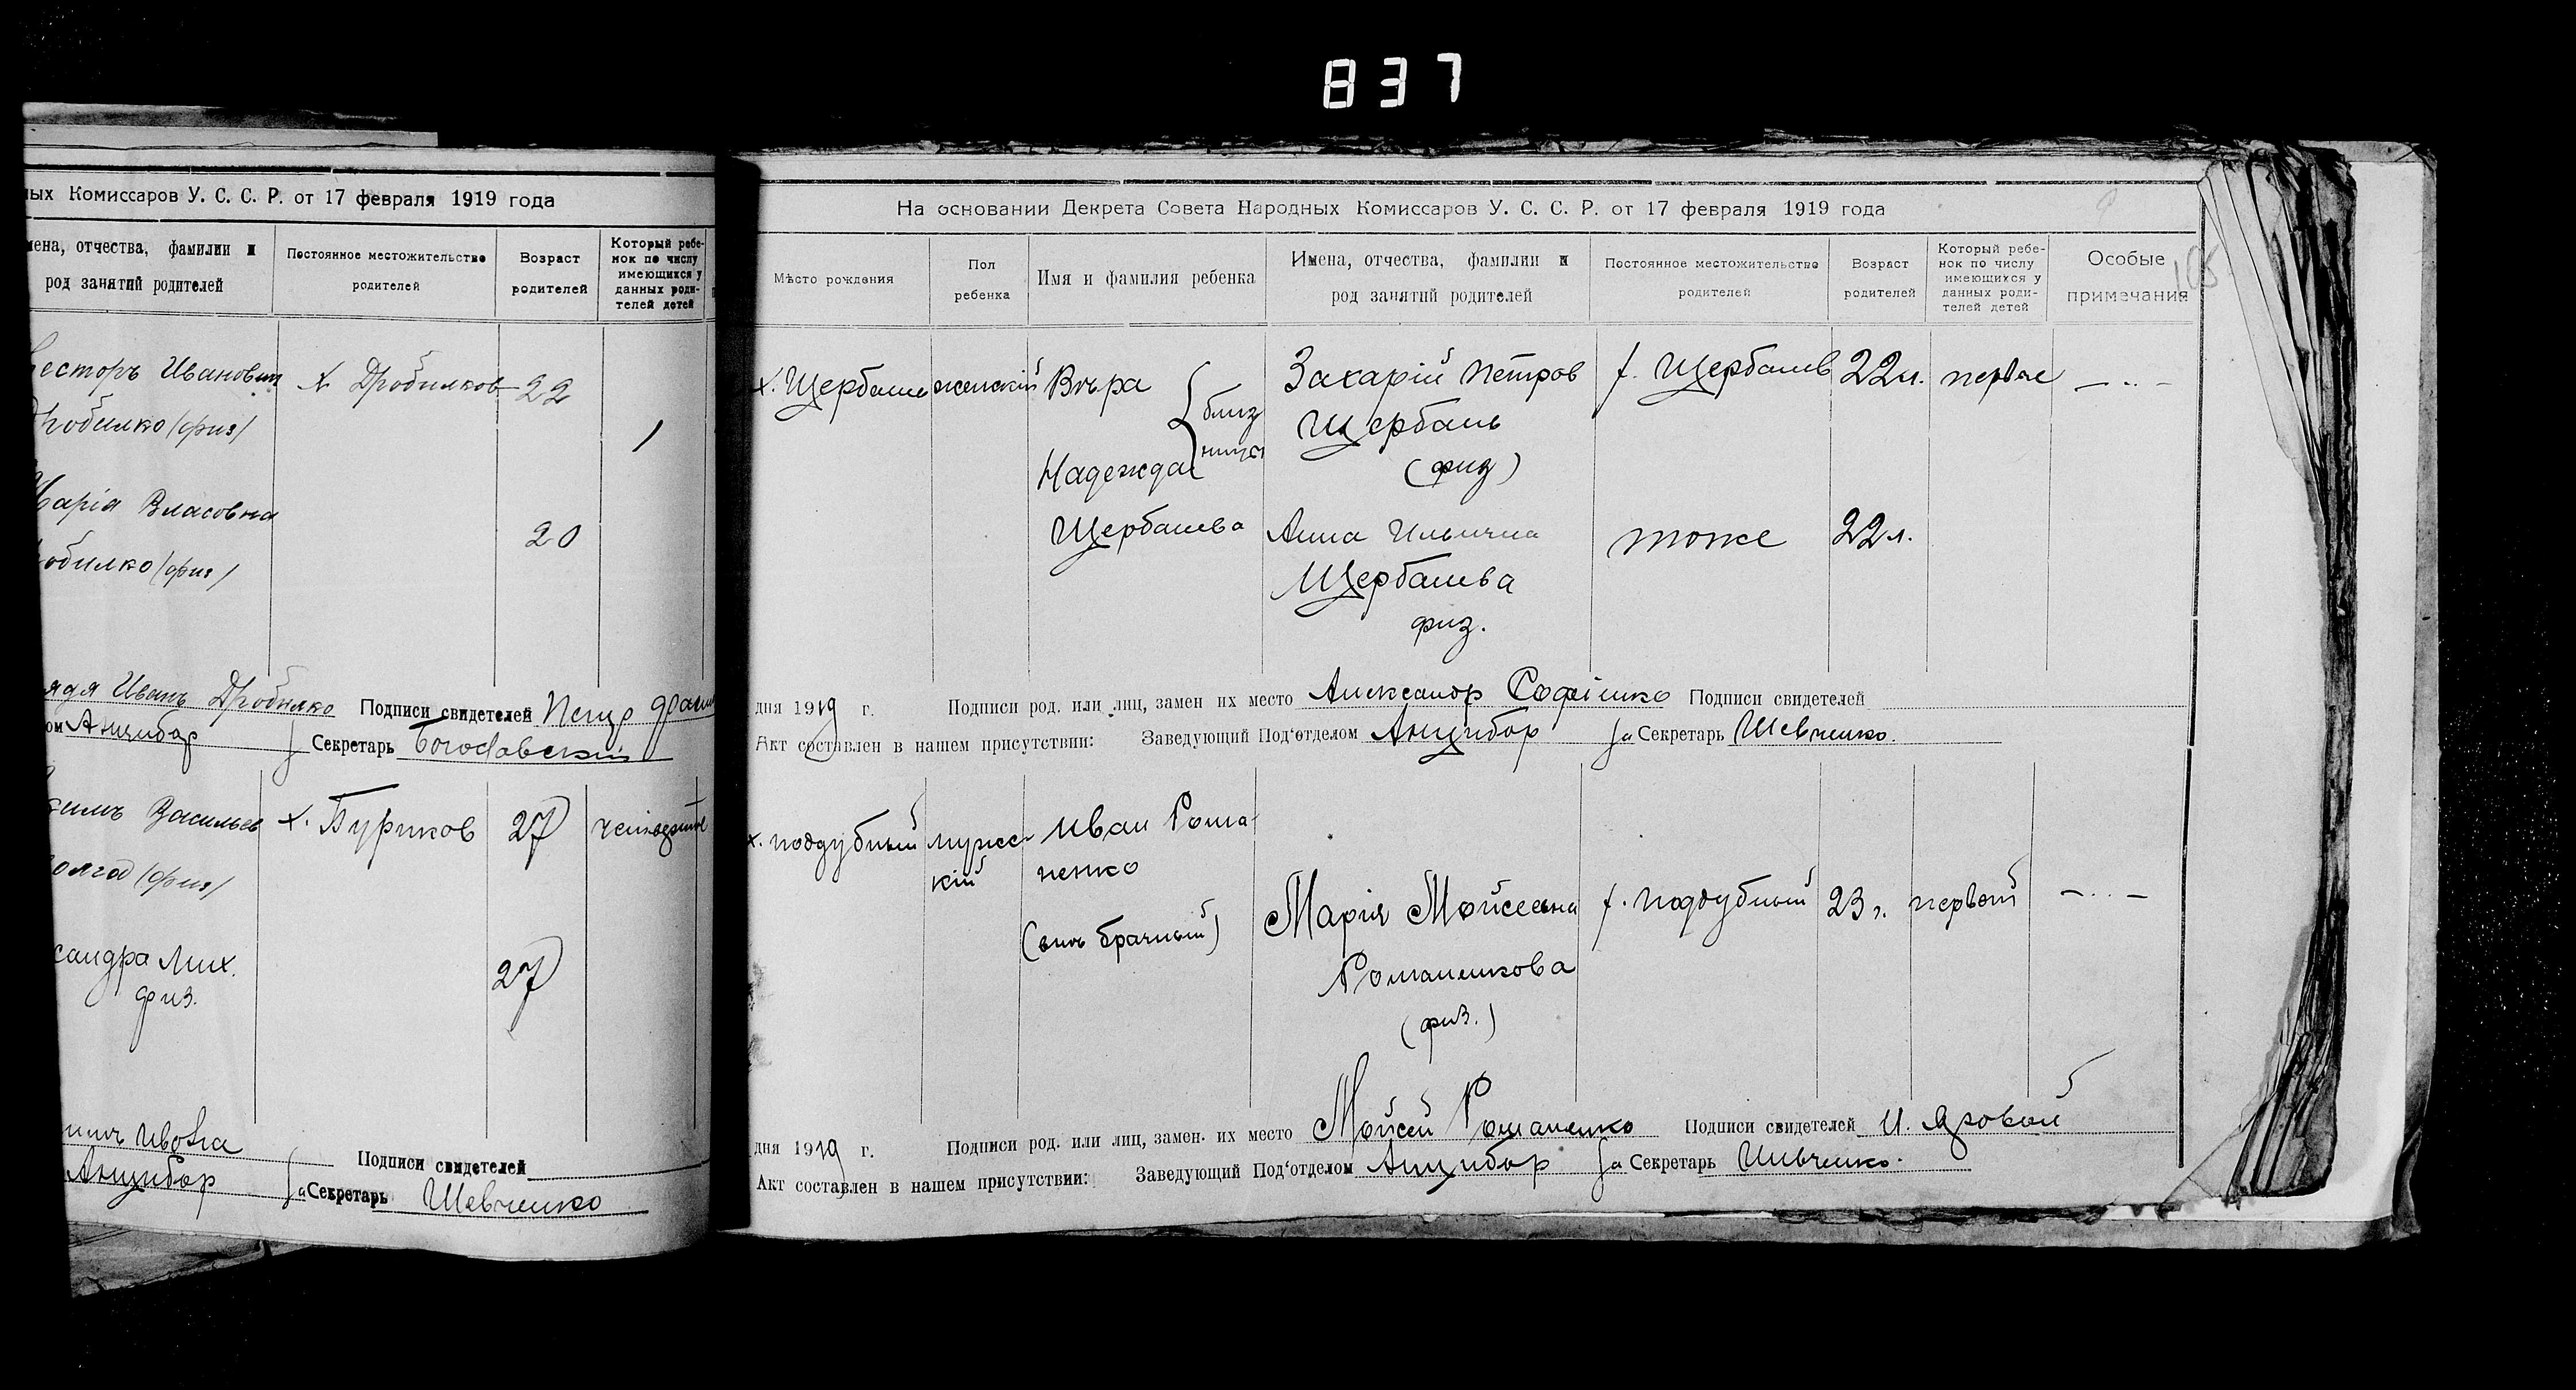 837
ых Комиссаров У. С. С. Р. от 17 февраля 1919 года
мена, отчества, фамилии и
род занятий родителей
Постоянное местожительство
родителей
Возраст
родителей
Который ребе-
нок по числу
имеющихся у
данных роди-
телей детей
есторъ Иванович
х. Дробилков
22
робилко (физ)
1
арія Власовна
20
обилко (физ)
ядя Иванъ Дробилко Подписи свидетелей Петр
ом Анцибор Секретарь Богославскій
Васильев
х. Буриков
27
(физ)
сандра Мих.
27
физ.
Подписи свидетелей
Анцибор
За Секретарь Шевченко
На основании Декрета Совета Народных Комиссаров У. С. С. Р. от 17 февраля 1919 года
105
Мѣсто рождения
Пол
ребенка
Имя и фамилия ребенка
Имена, отчества, фамилии и
род занятий родителей
Постоянное местожительство
родителей
Возраст
родителей
Который ребе-
нок по числу
имеющихся у
данных роди-
телей детей
Особые
примечания
х. Щербанев
женскій
Вѣра
близ
ницы
Надежда
Щербанева
Захарій Петров
Щербань
(физ)
х. Щербанев
22 л.
первые
Анна Ильична
Щербанева
физ.
тоже
22 л.
дня 1919 г. Подписи род. или лиц, замен их место Александр Софіенко Подписи свидетелей
Акт составлен в нашем присутствии: Заведующий Под'отделом Анцибор За Секретарь Шевченко.
х. Поддубный
мужс-
кій
Иван Рома-
ненко
(внѣ брачный)
Марія Мойсеевна
Романенкова
(физ.)
х. Поддубный
23 г.
первый
дня 1919 г. Подписи род. или лиц, замен. их место Мойсей Романенко Подписи свидетелей И. Яровой
Акт составлен в нашем присутствии: Заведующий Под'отделом Анцибор За Секретарь Шевченко.